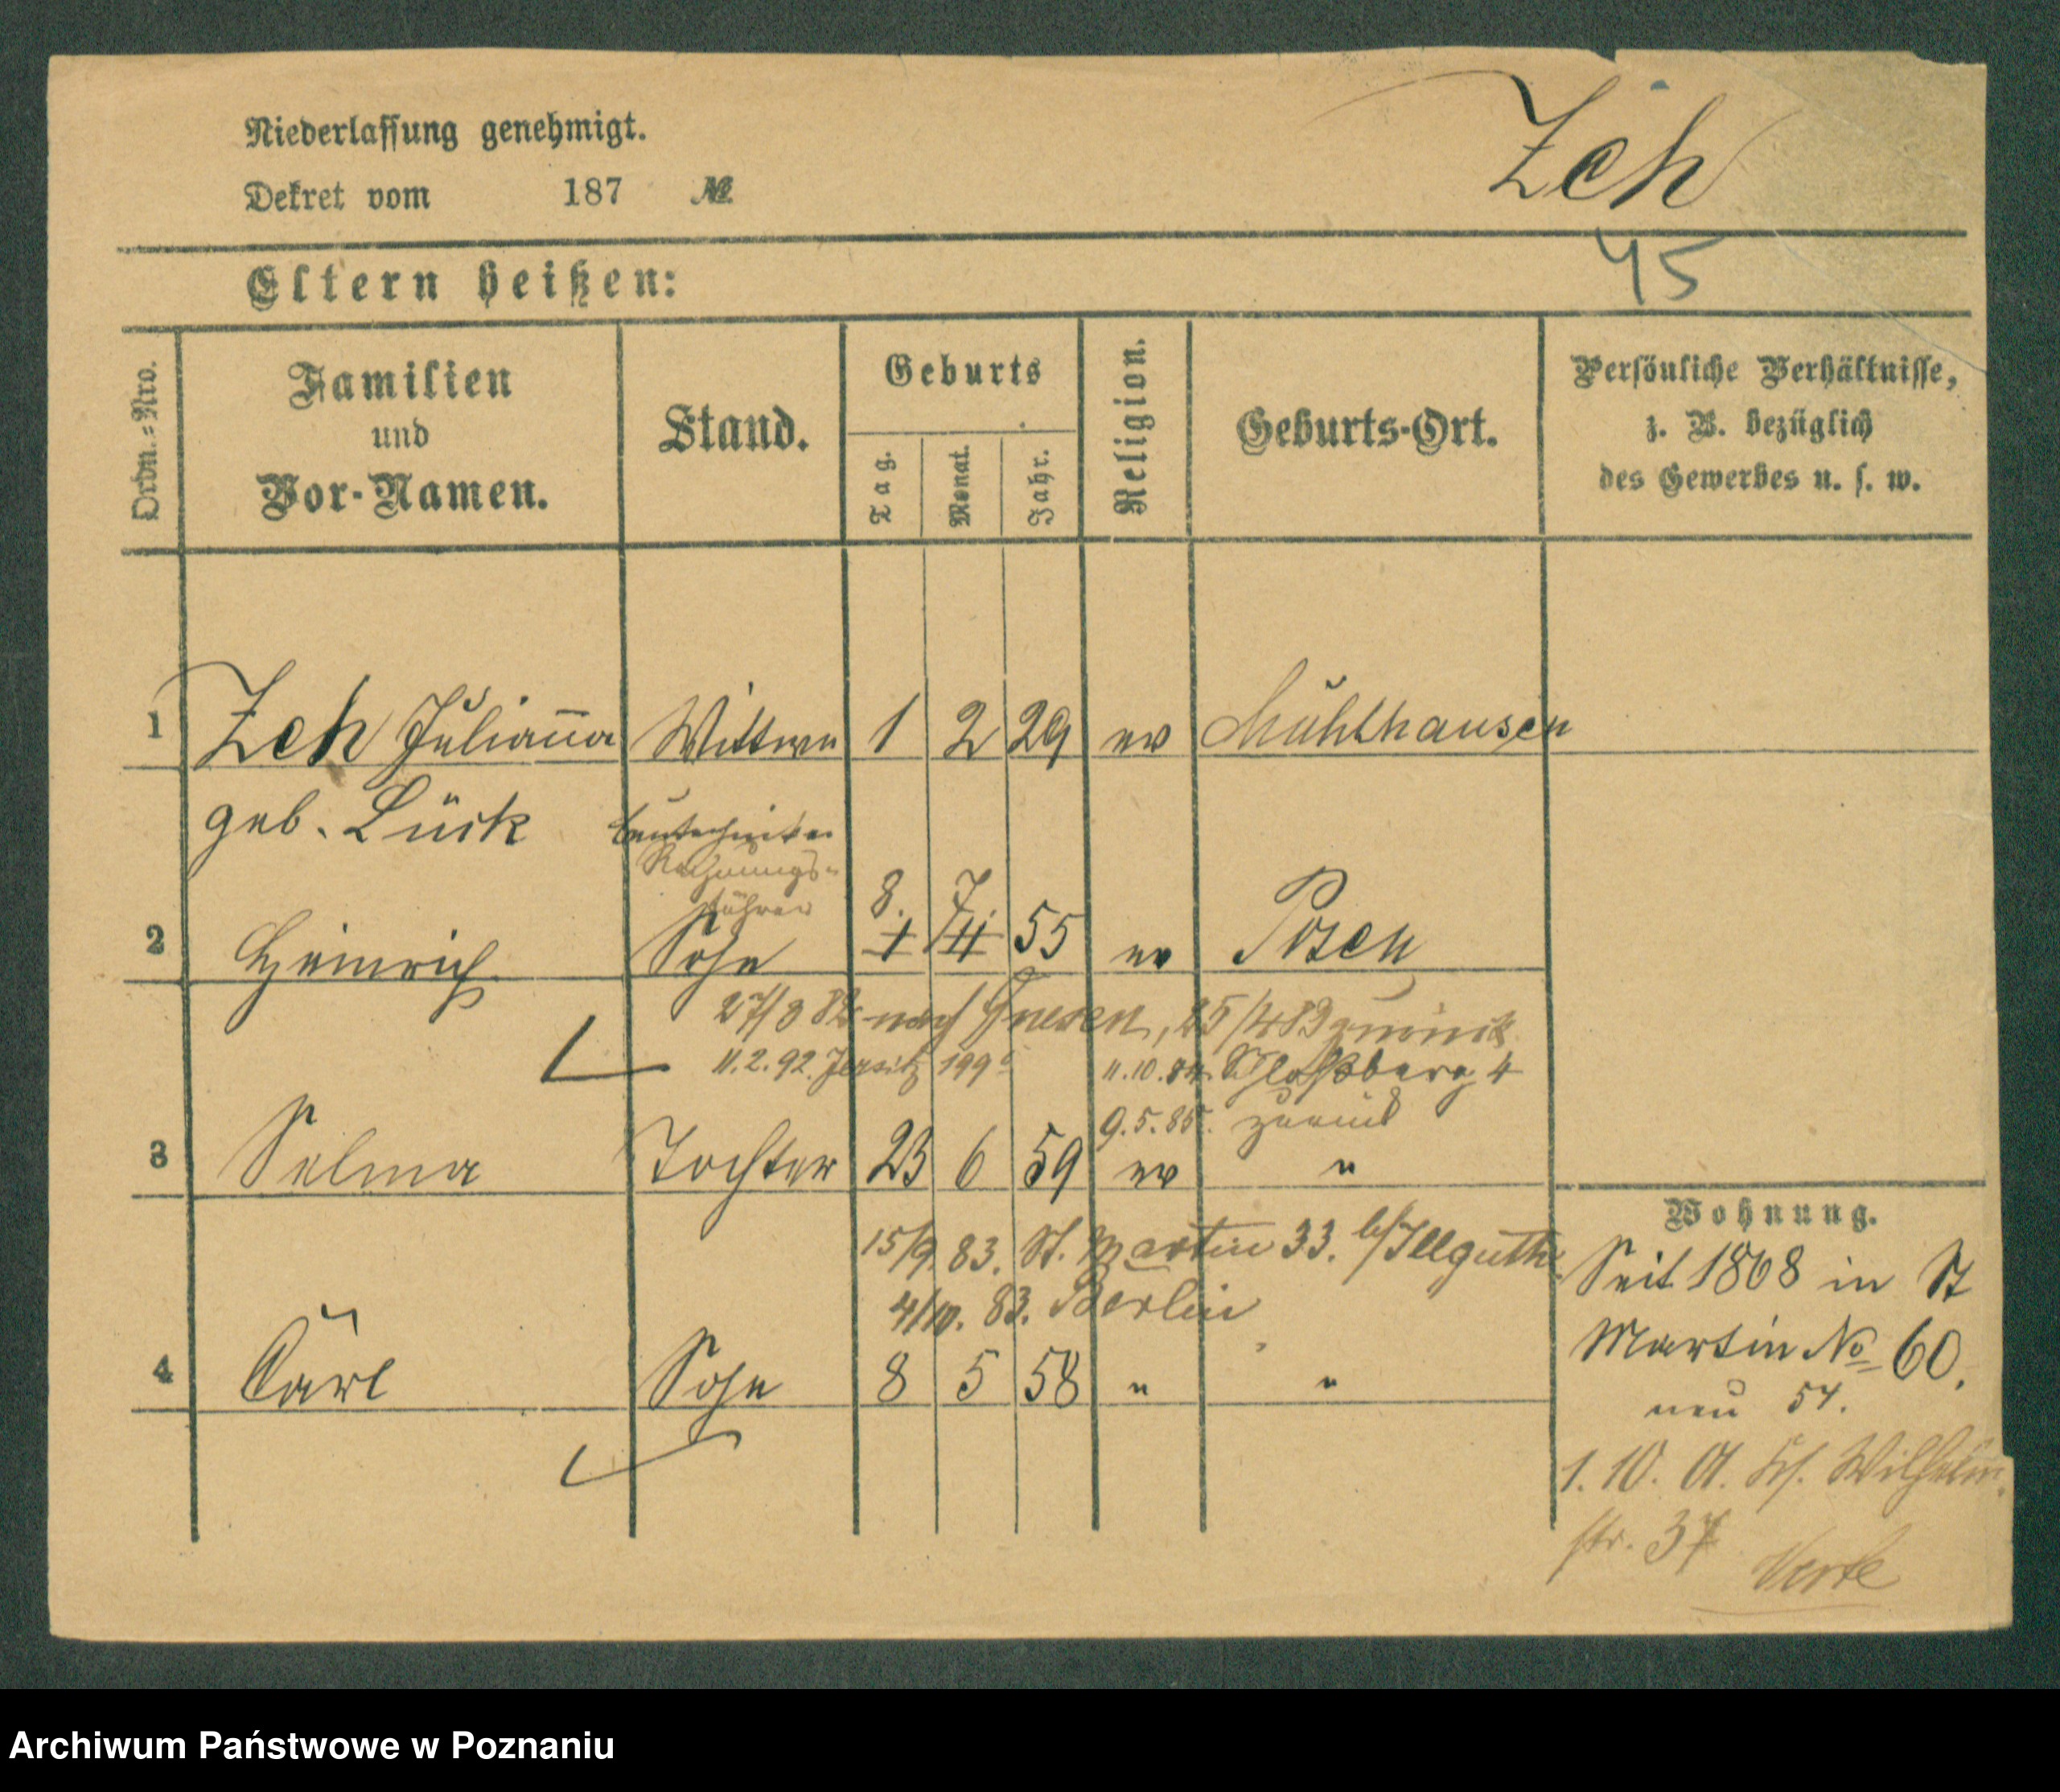 Niederlassung genehmigt.
Zeh
Dekret vom 187 №
45
Eltern heißen:
Ordn.-Nro.
Familien
und
Vor-Namen.
Stand.
Geburts
Tag.
Monat.
Jahr.
Religion.
Geburts-Ort.
Persönliche Verhältnisse,
z. B. bezüglich
des Gewerbes u. s. w.
1 Zeh Julianna Wittwe 1 2 29 ev Mühlhausen
geb. Lück
Bautechniker
Rechnungs-
führer
8. 7.
2 Heinrich Sohn 1 11 55 ev Posen
27/3 82 nach Gnesen, 25/4 83 zurück
11.2.92. Jersitz 199 11.10.84. Schloßberg 4
9.5.85. zurück
3 Selma Tochter 23 6 59 ev "
Wohnung.
15/9 83. St. Martin 33. b/Illguth
Seit 1868 in St
4/10. 83. Berlin
Martin No 60.
4 Carl Sohn 8 5 58 " "
neu 57.
1. 10. 01. Wilhelm
str. 37
Verte
Archiwum Państwowe w Poznaniu